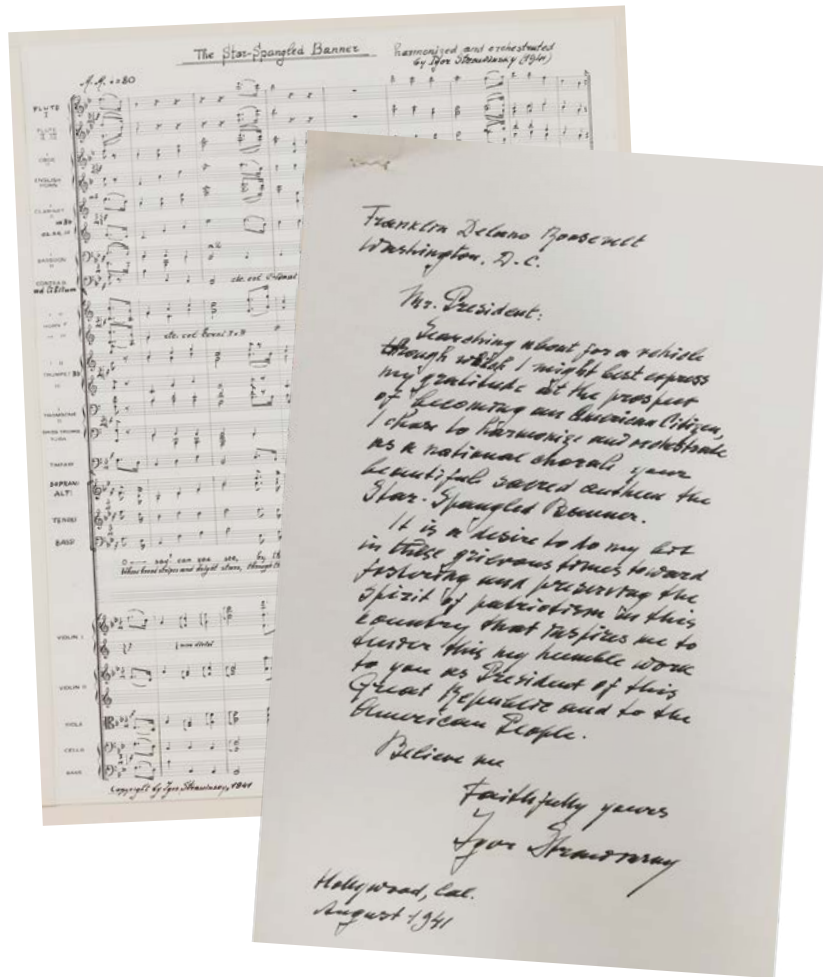 The Star-Spangled Banner
Harmonized and orchestrated
by Igor Strawinsky (1941)
M.M. = 80
FLUTE
I
FLUTE
II III
OBOE
ENGLISH
HORN
CLARINET
BASSOON
ad libitum
HORN F
TRUMPET Bb
TROMBONE
BASS TROMB
TUBA
TIMPANI
SOPRANI
ALTI
TENORI
BASSI
O say! can you see, by th
Whose broad stripes and bright stars, through th
VIOLIN I
VIOLIN II
VIOLA
CELLO
BASS
Copyright by Igor Strawinsky, 1941
Franklin Delano Roosevelt
Washington, D.C.
Mr. President:
Searching about for a vehicle
through which I might best express
my gratitude at the prospect
of becoming an American Citizen,
I chose to harmonize and orchestrate
as a national chorale your
beautiful sacred anthem the
Star-Spangled Banner.
It is a desire to do my bit
in these grievous times toward
fostering and preserving the
spirit of patriotism in this
country that inspires me to
tender this my humble work
to you as President of this
Great Republic and to the
American People.
Believe me
Faithfully yours
Igor Strawinsky
Hollywood, Cal.
August 1941